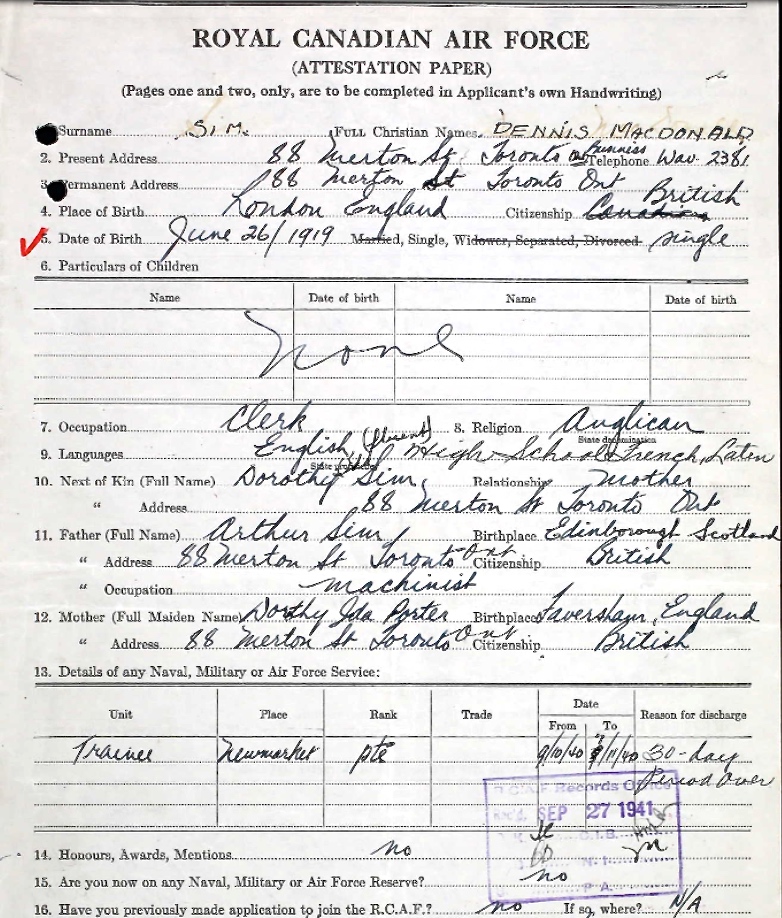 ROYAL CANADIAN AIR FORCE
(ATTESTATION PAPER)
(Pages one and two, only, are to be completed in Applicant's own Handwriting)
Surname SIM. FULL Christian Names DENNIS MACDONALD
2. Present Address 88 Merton St Toronto Ont Business Telephone Wav. 2381
3. Permanent Address 188 Merton St Toronto Ont British
4. Place of Birth London England Citizenship Canadian
5. Date of Birth June 26/1919 Married, Single, Widower, Separated, Divorced single
6. Particulars of Children
Name Date of birth Name Date of birth
none
7. Occupation Clerk 8. Religion Anglican
State denomination
9. Languages English (fluent) High School French, Laten
10. Next of Kin (Full Name) Dorothy Sim, Relationship Mother
" Address 88 Merton St Toronto Ont
11. Father (Full Name) Arthur Sim Birthplace Edinborough Scotland
" Address 88 Merton St Toronto Ont Citizenship British
" Occupation machinist
12. Mother (Full Maiden Name) Dorthy Ida Porter Birthplace Faversham, England
" Address 88 Merton St Toronto Ont Citizenship British
13. Details of any Naval, Military or Air Force Service:
Unit Place Rank Trade Date Reason for discharge
From To
Trainee Newmarket pte 9/10/40 /11/40 30-day
Period Over
R.C.A.F. Records Office
SEP 27 1941
C.I.B.
N.I.
P.A.
14. Honours, Awards, Mentions no
15. Are you now on any Naval, Military or Air Force Reserve? no
16. Have you previously made application to join the R.C.A.F.? no If so, where? N/A